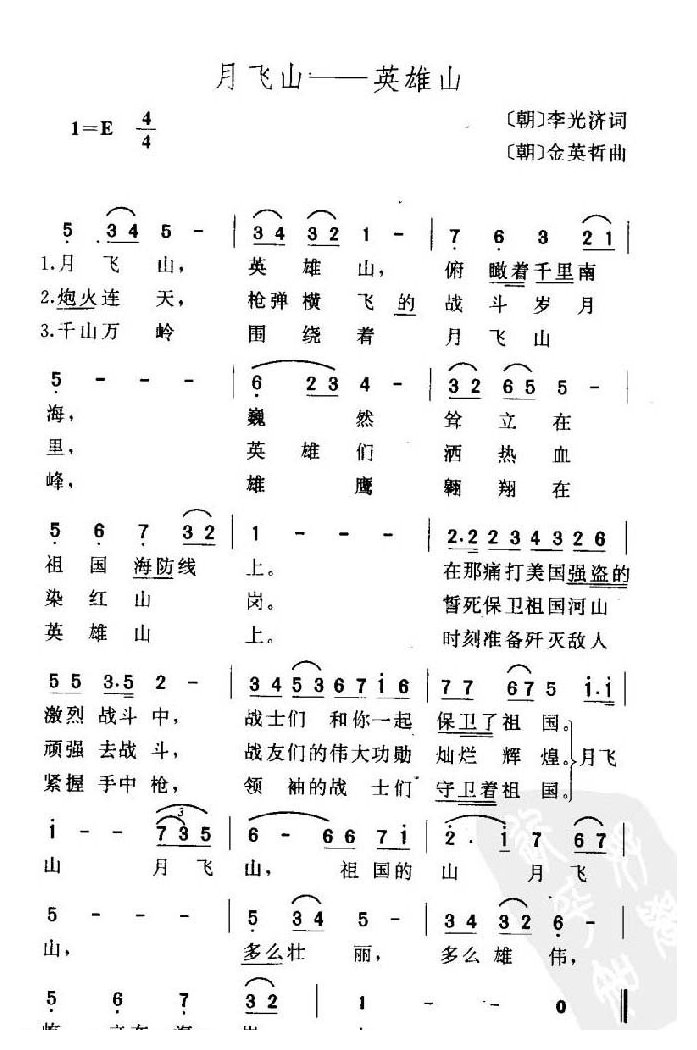 月飞山——英雄山
1=E 4/4
〔朝〕李光济词
〔朝〕金英哲曲
5 34 5 - | 34 32 1 - | 7 6 3 21 |
1.月飞山, 英雄山, 俯瞰着千里南
2.炮火连天, 枪弹横飞的战斗岁月
3.千山万岭 围绕着 月飞山
5 - - - | 6 23 4 - | 32 65 5 - |
海, 巍然 耸立在
里, 英雄们 洒热血
峰, 雄鹰 翱翔在
5 6 7 32 | 1 - - - | 2.2 23 43 26 |
祖国海防线 上。 在那痛打美国强盗的
染红山 岗。 誓死保卫祖国河山
英雄山 上。 时刻准备歼灭敌人
55 3.5 2 - | 34 53 67 16 | 77 67 5 1.1 |
激烈战斗中, 战士们和你一起 保卫了祖国。
顽强去战斗, 战友们的伟大功勋 灿烂辉煌。月飞
紧握手中枪, 领袖的战士们 守卫着祖国。
1 - - 735 | 6 - 66 71 | 2. 1 7 67 |
山 月飞 山, 祖国的 山 月飞
5 - - - | 5 34 5 - | 34 32 6 - |
山, 多么壮丽, 多么雄伟,
5 6 7 32 | 1 - - 0 ‖